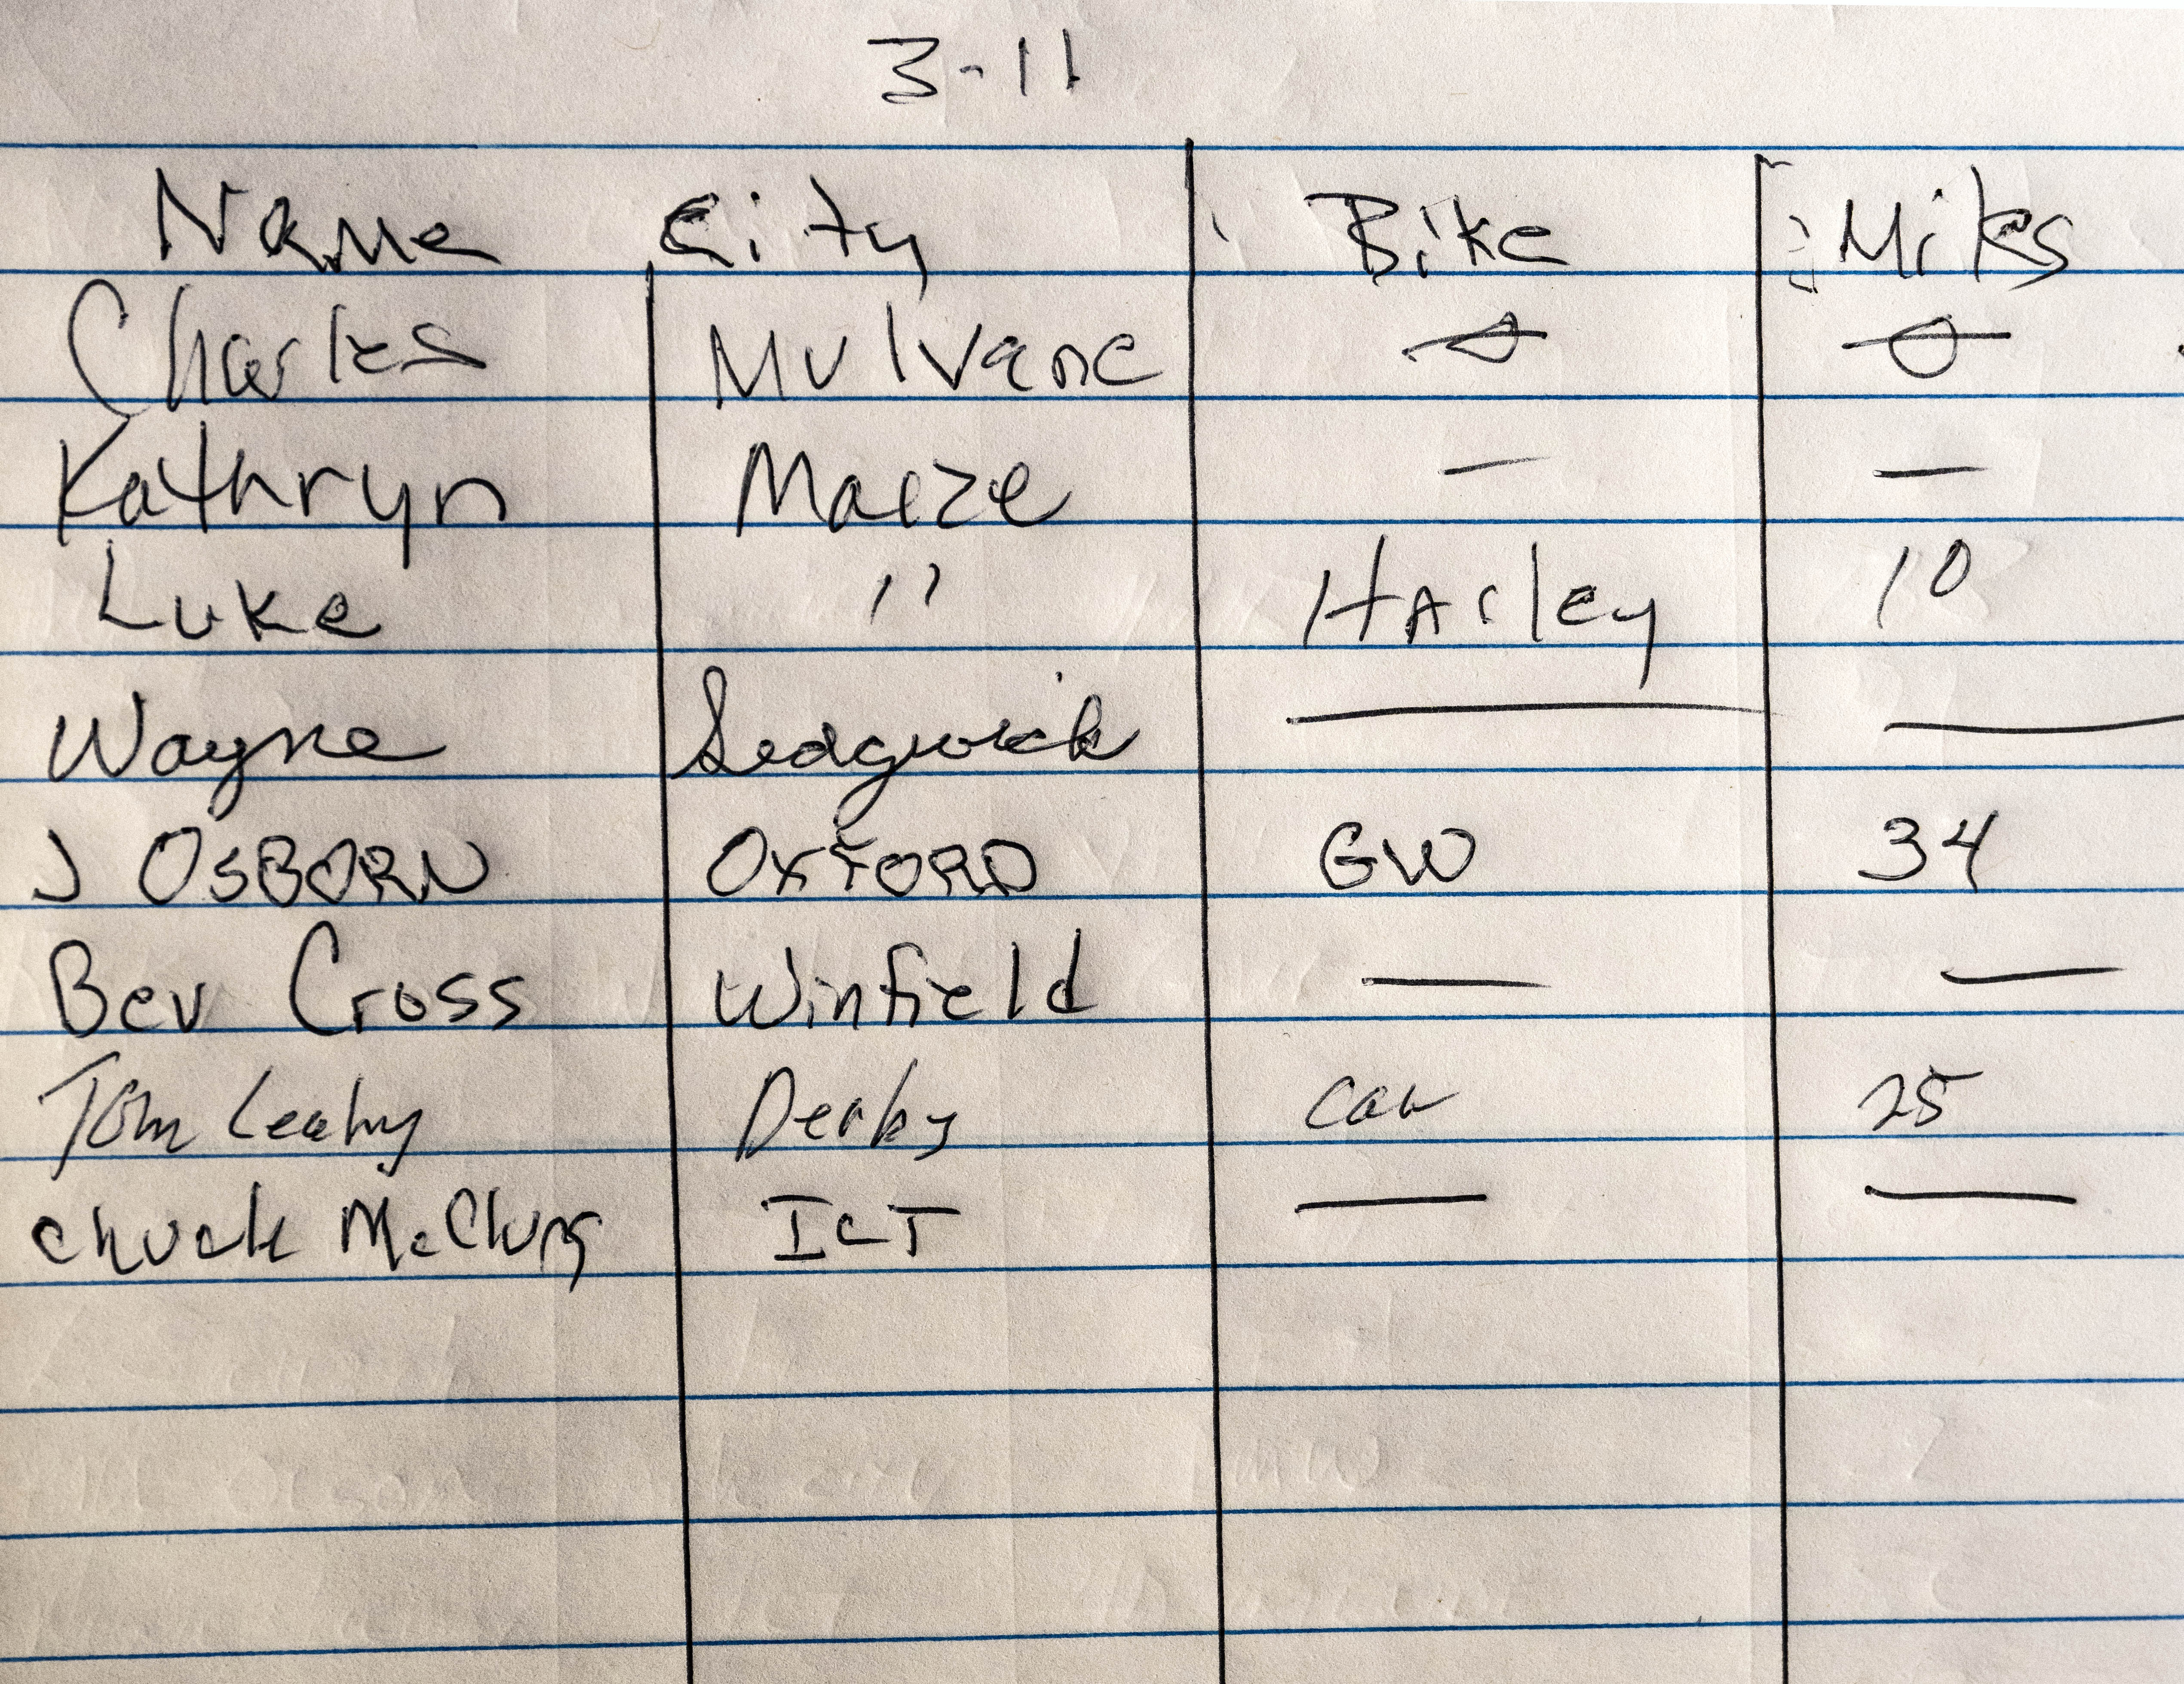 3-11
Name City Bike Miles
Charles Mulvane
Kathryn Maize — —
Luke " Harley 10
Wayne Sedgwick — —
J OSBORN OXFORD GW 34
Bev Cross Winfield — —
Tom Leahy Derby car 25
Chuck McClung ICT — —